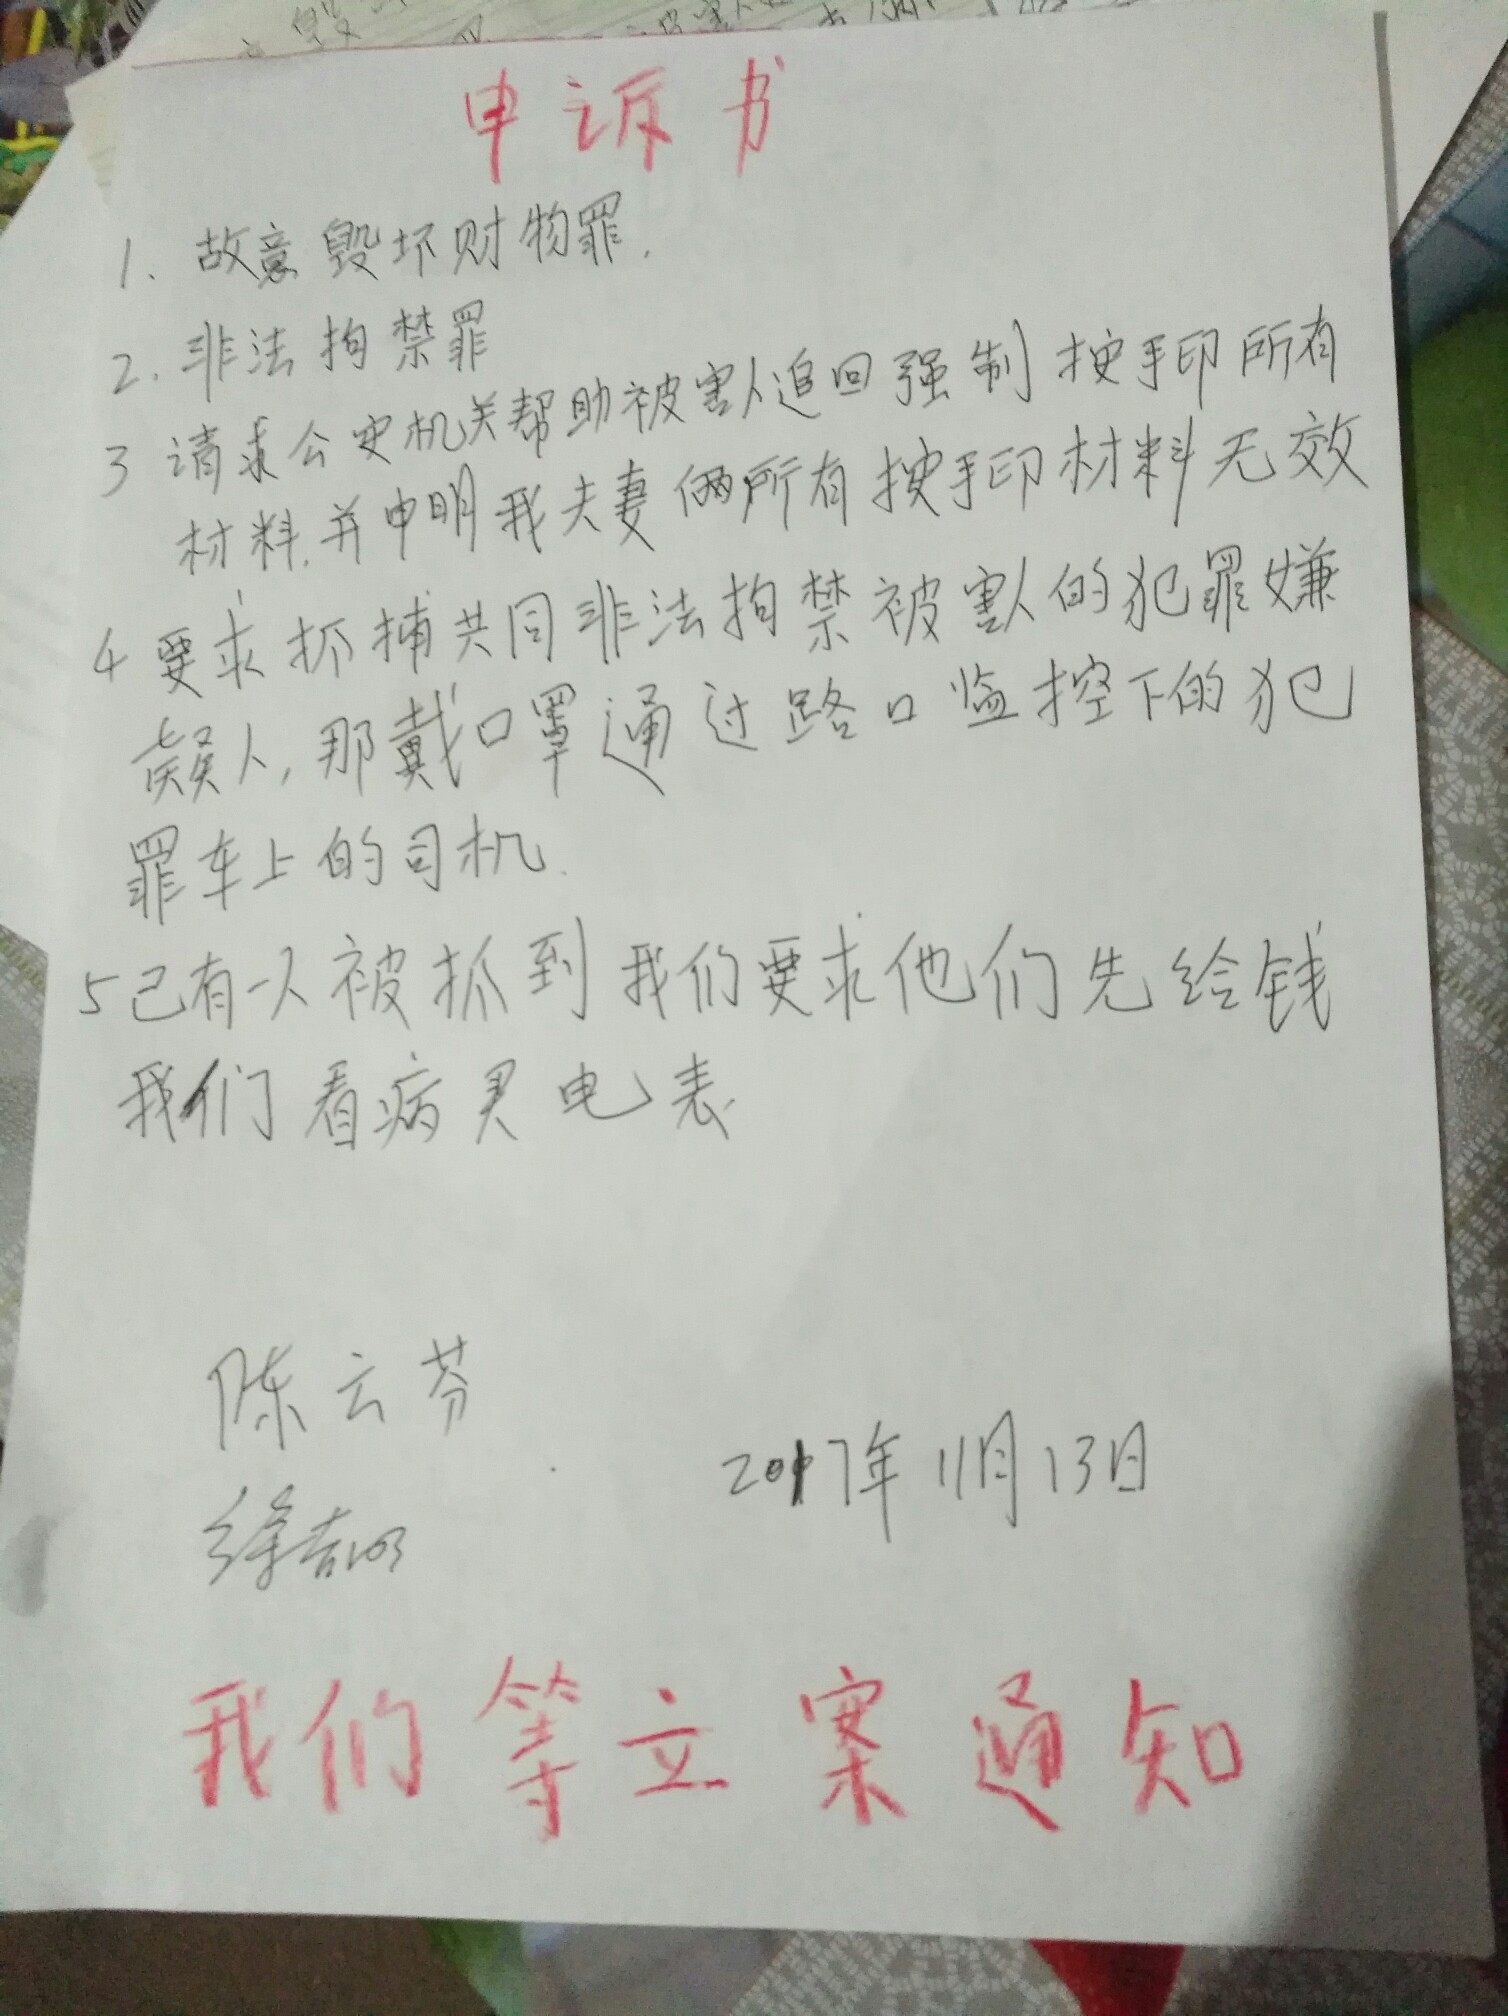 申诉书
1. 故意毁坏财物罪.
2. 非法拘禁罪
3 请求公安机关帮助被害人追回强制按手印所有
材料.并申明我夫妻俩所有按手印材料无效
4 要求抓捕共同非法拘禁被害人的犯罪嫌
疑人,那戴口罩通过路口监控下的犯
罪车上的司机.
5 已有一人被抓到我们要求他们先给钱
我们看病买电表.
陈云芬
徐
2017年11月13日
我们等立案通知